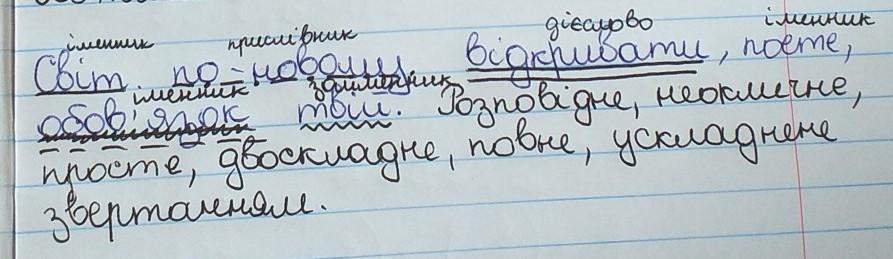 іменник прислівник дієслово іменник
Світ по-новому відкривати, поете,
іменник займенник
обов'язок твій. Розповідне, неокличне,
просте, двоскладне, повне, ускладнене
звертанням.